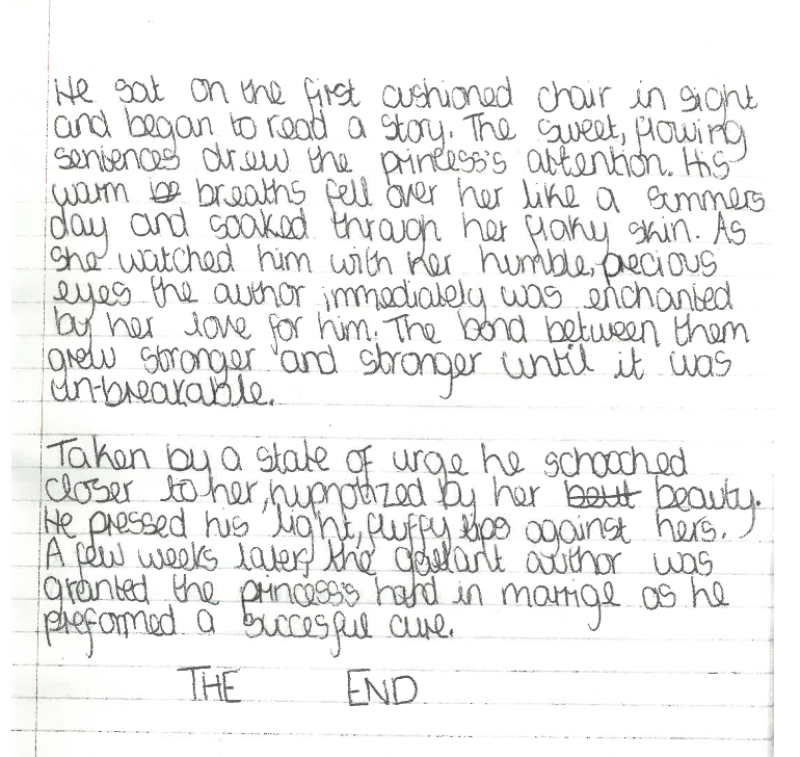 He sat on the first cushioned chair in sight
and began to read a story. The sweet, flowing
sentences drew the princess's attention. His
warm breaths fell over her like a summers
day and soaked through her flaky skin. As
she watched him with her humble, precious
eyes the author immediately was enchanted
by her love for him. The bond between them
grew stronger and stronger until it was
un-breakable.
Taken by a state of urge he schooched
closer to her, hypnotized by her beauty.
He pressed his light, fluffy lips against hers.
A few weeks later, the gallant author was
granted the princess's hand in marrige as he
preformed a succesful cure.
THE END